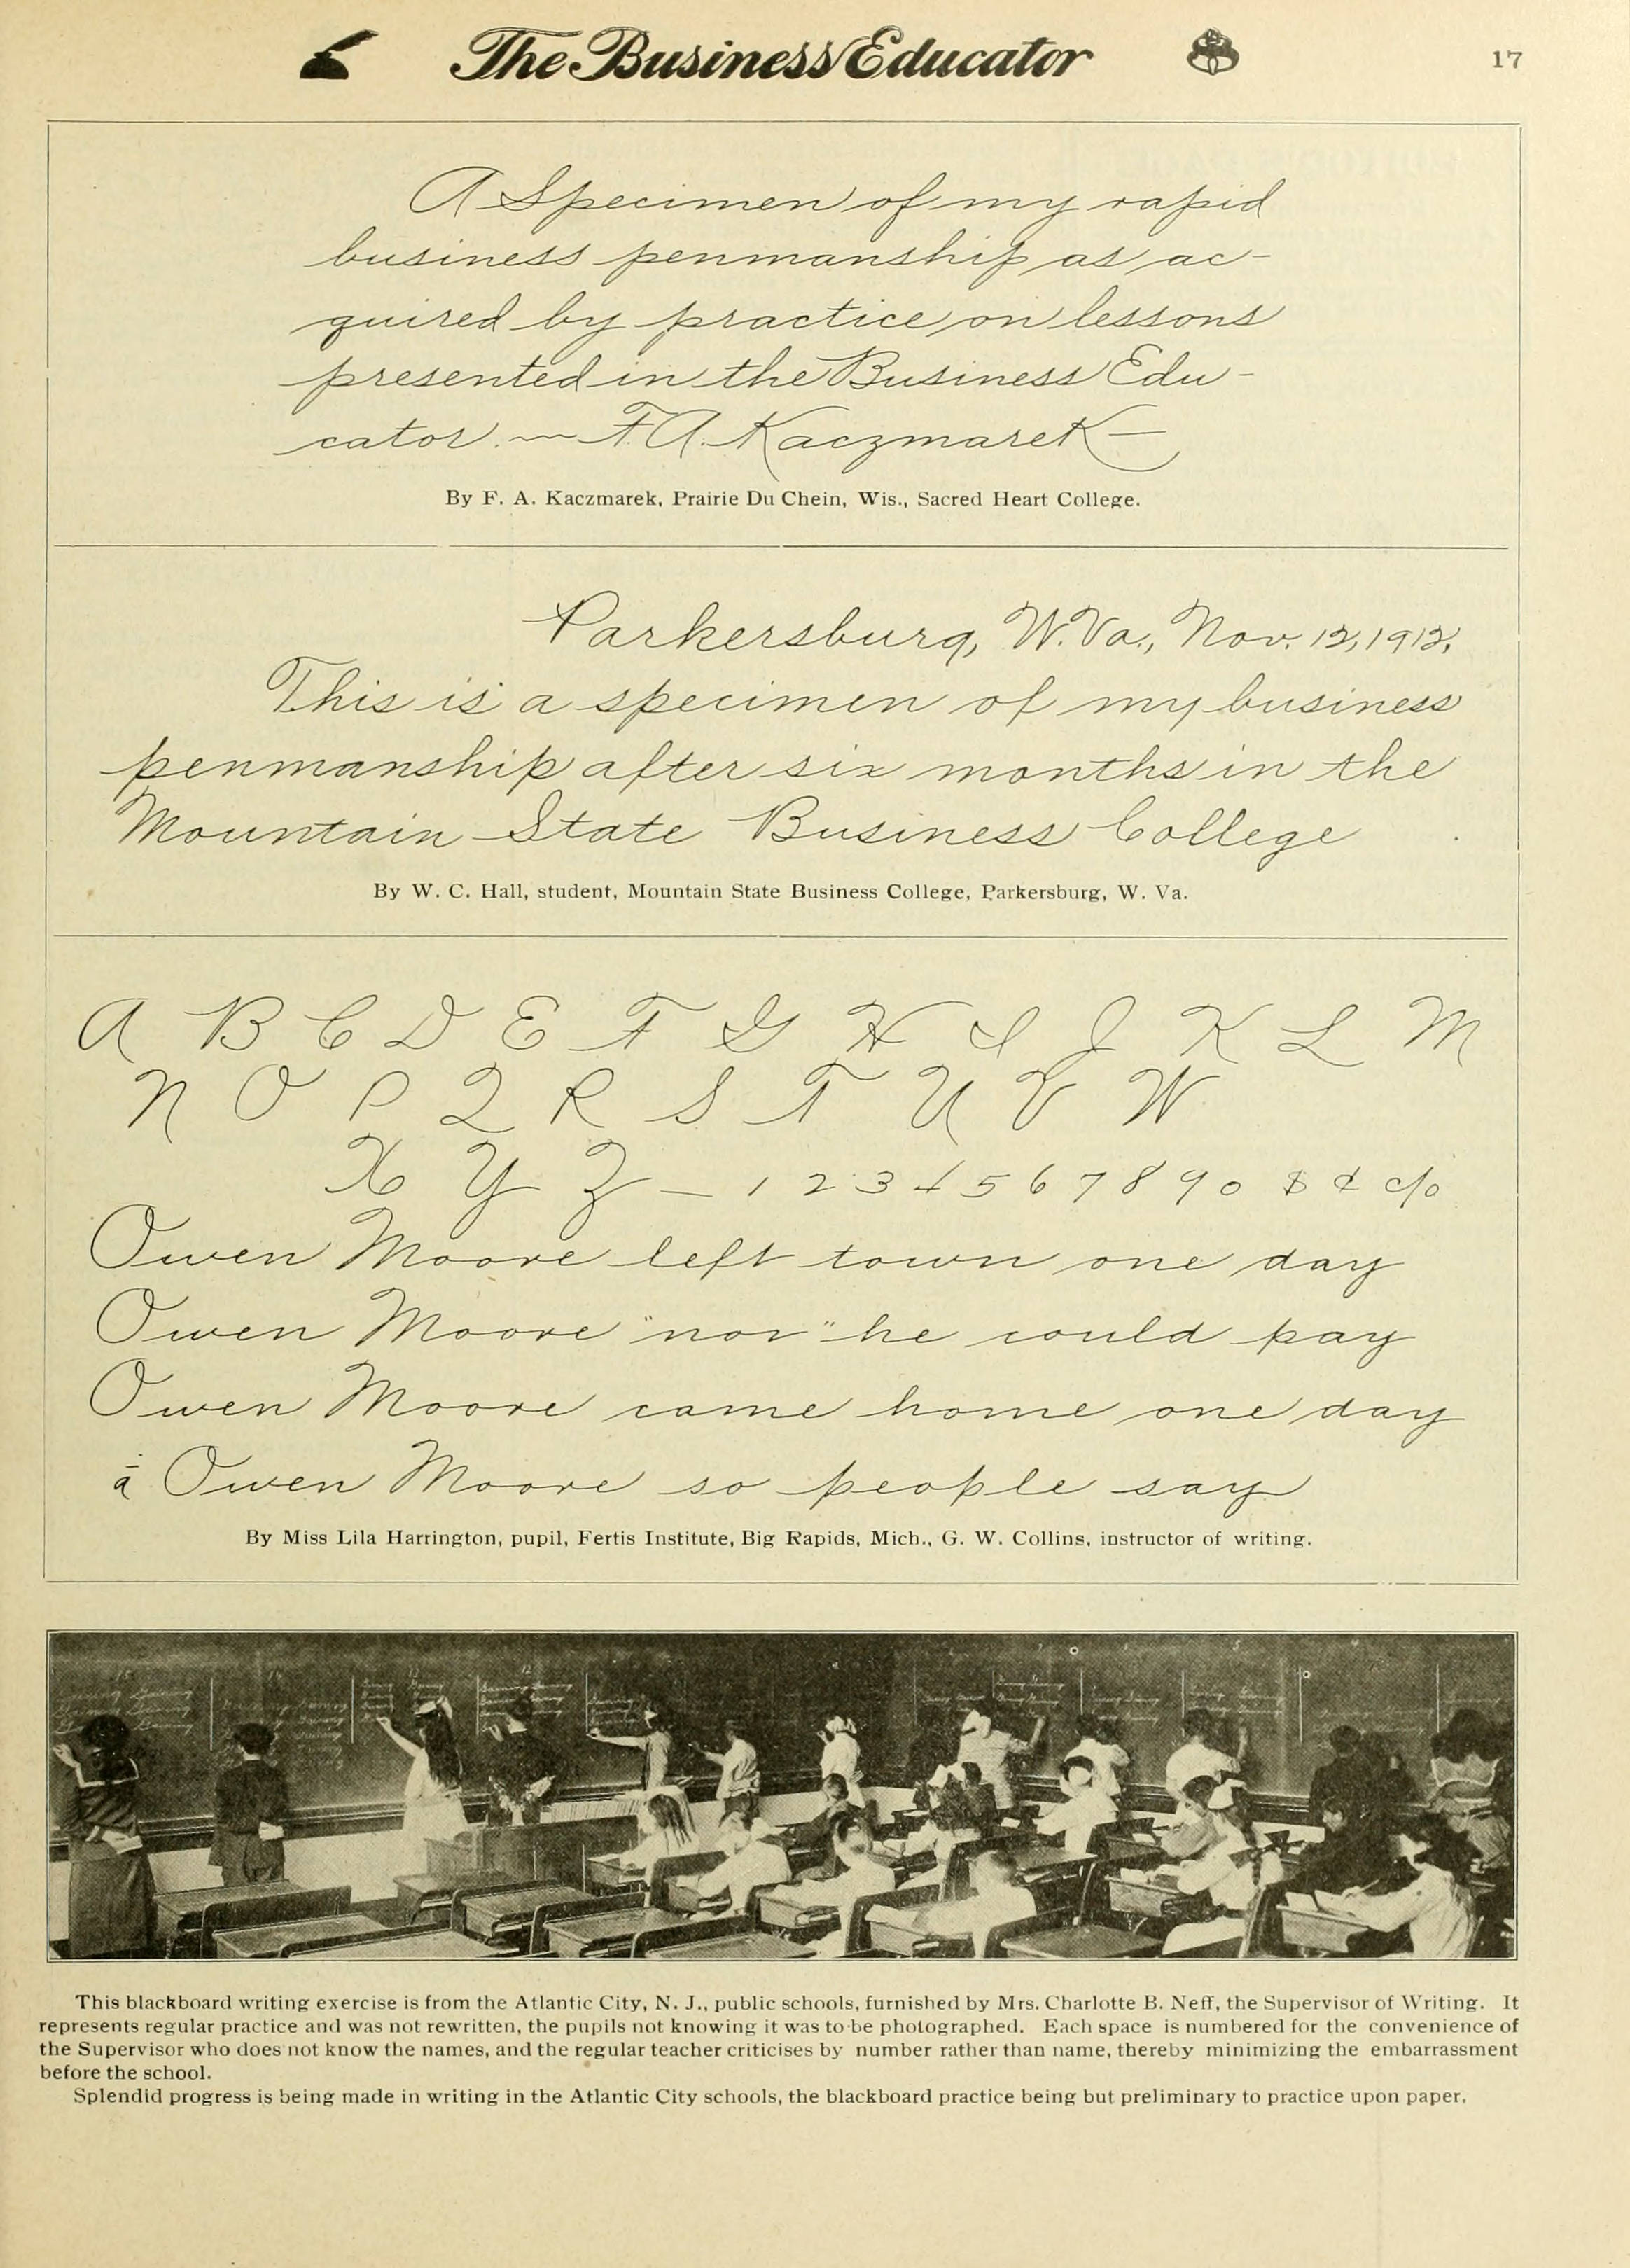 The Business Educator 17
A Specimen of my rapid
business penmanship as ac-
quired by practice on lessons
presented in the Business Edu-
cator. F. A. Kaczmarek
By F. A. Kaczmarek, Prairie Du Chein, Wis., Sacred Heart College.
Parkersburg, W. Va., Nov. 12, 1912.
This is a specimen of my business
penmanship after six months in the
Mountain State Business College
By W. C. Hall, student, Mountain State Business College, Parkersburg, W. Va.
A B C D E F G H I J K L M
N O P Q R S T U V W
X Y Z — 1 2 3 4 5 6 7 8 9 0 $ ¢ c/o
Owen Moore left town one day
Owen Moore "nor" he could pay
Owen Moore came home one day
ā Owen Moore so people say
By Miss Lila Harrington, pupil, Fertis Institute, Big Rapids, Mich., G. W. Collins, instructor of writing.
This blackboard writing exercise is from the Atlantic City, N. J., public schools, furnished by Mrs. Charlotte B. Neff, the Supervisor of Writing. It
represents regular practice and was not rewritten, the pupils not knowing it was to be photographed. Each space is numbered for the convenience of
the Supervisor who does not know the names, and the regular teacher criticises by number rather than name, thereby minimizing the embarrassment
before the school.
Splendid progress is being made in writing in the Atlantic City schools, the blackboard practice being but preliminary to practice upon paper.